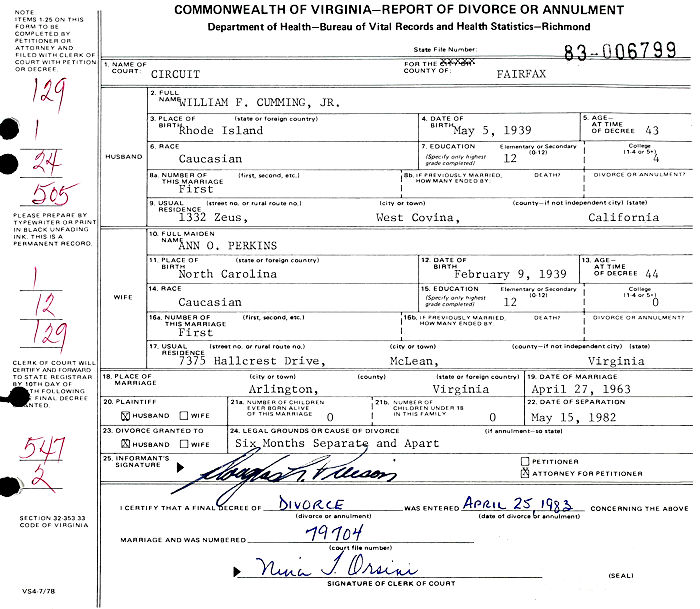 COMMONWEALTH OF VIRGINIA—REPORT OF DIVORCE OR ANNULMENT
Department of Health—Bureau of Vital Records and Health Statistics—Richmond
NOTE
ITEMS 1-25 ON THIS
FORM TO BE
COMPLETED BY
PETITIONER OR
ATTORNEY AND
FILED WITH CLERK OF
COURT WITH PETITION
OR DECREE.
129
1
24
505
PLEASE PREPARE BY
TYPEWRITER OR PRINT
IN BLACK UNFADING
INK. THIS IS A
PERMANENT RECORD.
1
12
129
CLERK OF COURT WILL
CERTIFY AND FORWARD
TO STATE REGISTRAR
BY 10TH DAY OF
FOLLOWING
FINAL DECREE
547
2
SECTION 32-353.33
CODE OF VIRGINIA
VS4-7/78
State File Number: 83-006799
1. NAME OF COURT: CIRCUIT FOR THE COUNTY OF: FAIRFAX
HUSBAND
2. FULL NAME WILLIAM F. CUMMING, JR.
3. PLACE OF BIRTH (state or foreign country) Rhode Island
4. DATE OF BIRTH May 5, 1939
5. AGE— AT TIME OF DECREE 43
6. RACE Caucasian
7. EDUCATION (Specify only highest grade completed) Elementary or Secondary (0-12) 12 College (1-4 or 5+) 4
8a. NUMBER OF THIS MARRIAGE (first, second, etc.) First
8b. IF PREVIOUSLY MARRIED, HOW MANY ENDED BY DEATH? DIVORCE OR ANNULMENT?
9. USUAL RESIDENCE (street no. or rural route no.) (city or town) (county—if not independent city) (state)
1332 Zeus, West Covina, California
WIFE
10. FULL MAIDEN NAME ANN O. PERKINS
11. PLACE OF BIRTH (state or foreign country) North Carolina
12. DATE OF BIRTH February 9, 1939
13. AGE— AT TIME OF DECREE 44
14. RACE Caucasian
15. EDUCATION (Specify only highest grade completed) Elementary or Secondary (0-12) 12 College (1-4 or 5+) 0
16a. NUMBER OF THIS MARRIAGE (first, second, etc.) First
16b. IF PREVIOUSLY MARRIED, HOW MANY ENDED BY DEATH? DIVORCE OR ANNULMENT?
17. USUAL RESIDENCE (street no. or rural route no.) (city or town) (county—if not independent city) (state)
7375 Hallcrest Drive, McLean, Virginia
18. PLACE OF MARRIAGE (city or town) (county) (state or foreign country)
Arlington, Virginia
19. DATE OF MARRIAGE April 27, 1963
20. PLAINTIFF X HUSBAND WIFE
21a. NUMBER OF CHILDREN EVER BORN ALIVE OF THIS MARRIAGE 0
21b. NUMBER OF CHILDREN UNDER 18 IN THIS FAMILY 0
22. DATE OF SEPARATION May 15, 1982
23. DIVORCE GRANTED TO X HUSBAND WIFE
24. LEGAL GROUNDS OR CAUSE OF DIVORCE (if annulment—so state)
Six Months Separate and Apart
25. INFORMANT'S SIGNATURE
PETITIONER
X ATTORNEY FOR PETITIONER
I CERTIFY THAT A FINAL DECREE OF DIVORCE WAS ENTERED APRIL 25, 1983 CONCERNING THE ABOVE
(divorce or annulment) (date of divorce or annulment)
MARRIAGE AND WAS NUMBERED 79704
(court file number)
Nina J. Orsini (SEAL)
SIGNATURE OF CLERK OF COURT